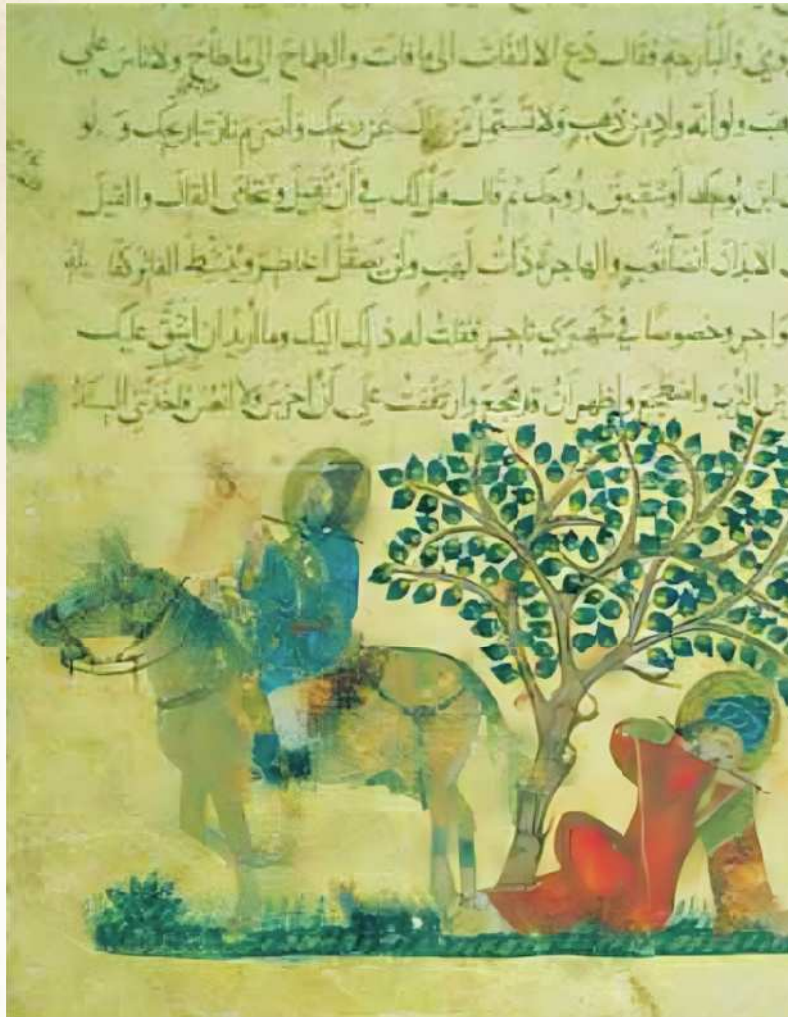 فقال دع الالتفات الى ما فات والطماح الى ما طاح ولا تاس علي
ذهب ولو أنه واد من ذهب ولا تستمل من مال عن ريحك وأضرم نار تباريحك ولو
ابن بوحك أو شقيق روحك ثم قال هل لك في أن تقيل وتتحامى القال والقيل
الابدان أنضاء تعب والهاجرة ذات لهب ولن يصقل الخاطر وينشط الفاتر كقا يلة
واجر وخصوصا في شهري ناجر فقلت له ذلك اليك وما أريد ان اشق عليك
الترب واضطجع واظهر أن قد هجع وارتفقت على أن احرس ولا انعس فاخذتني السنة